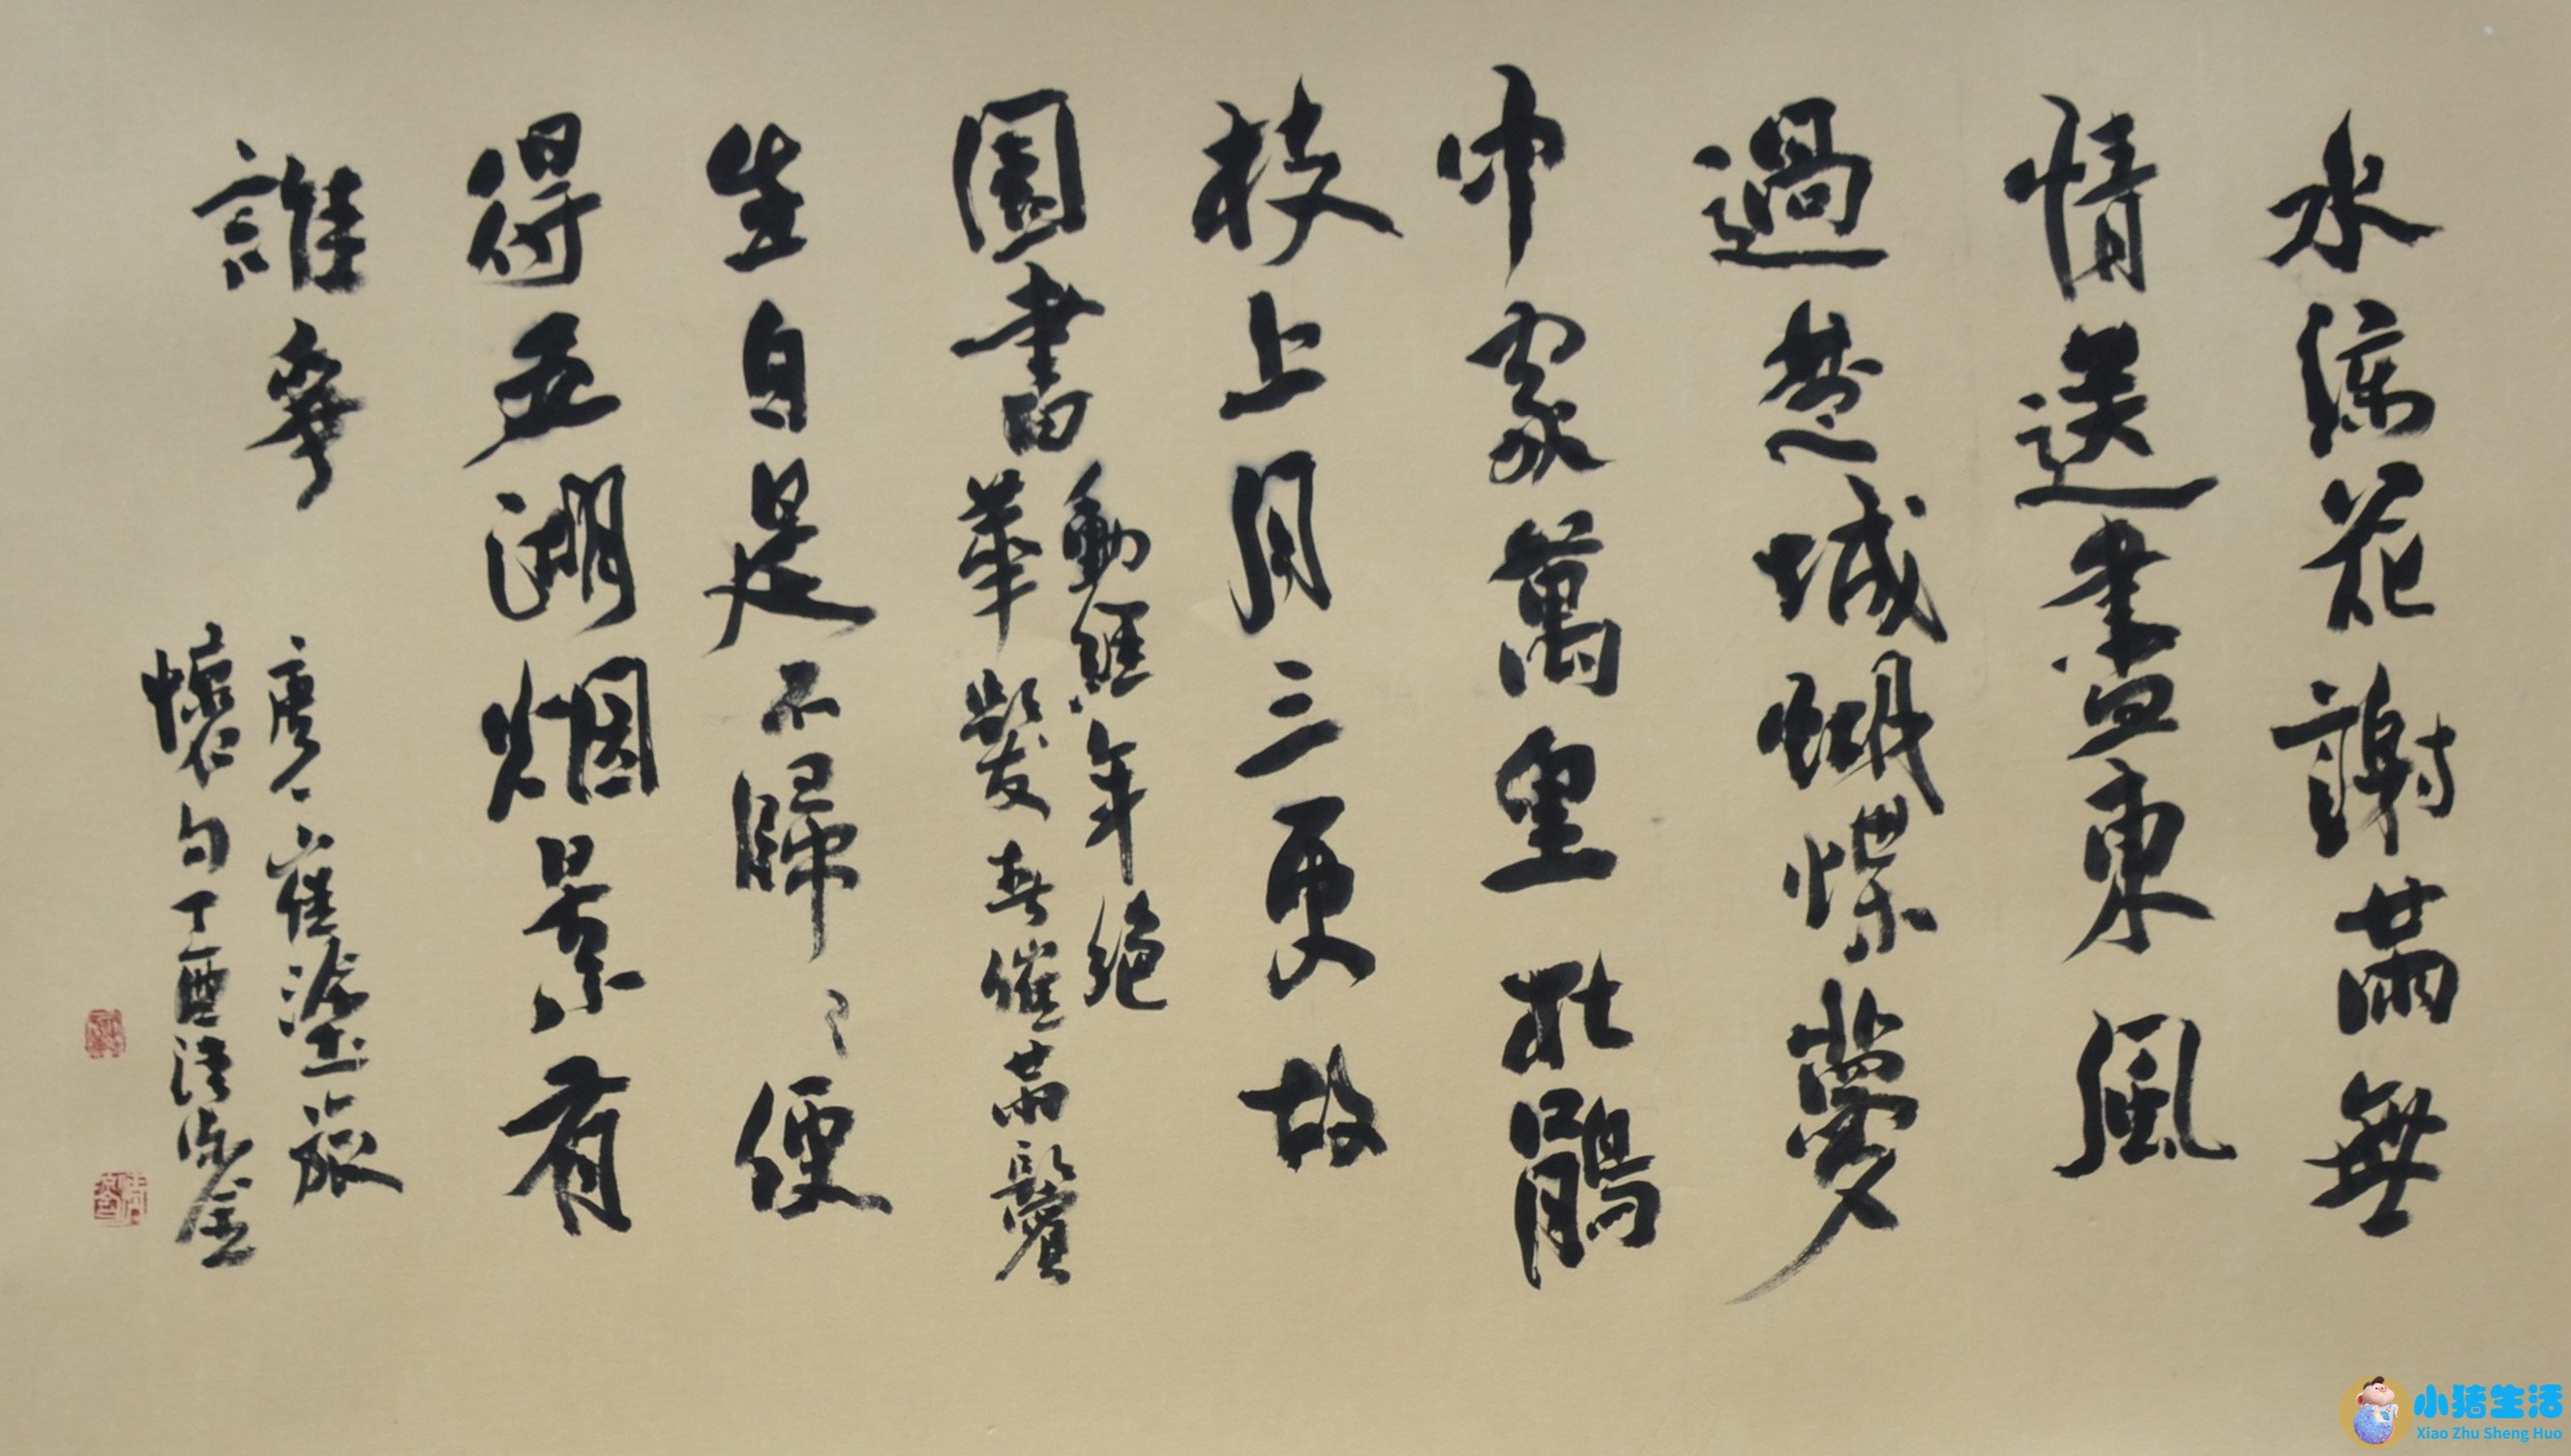 水流花謝兩無
情送盡東風
過楚城蝴蝶夢
中家萬里杜鵑
枝上月三更故
園書動經年絕
華髮春催兩鬢
生自是不歸〻便
得五湖烟景有
誰爭
唐人崔塗旅
懷句丁酉清
小猪生活
Xiao Zhu Sheng Huo